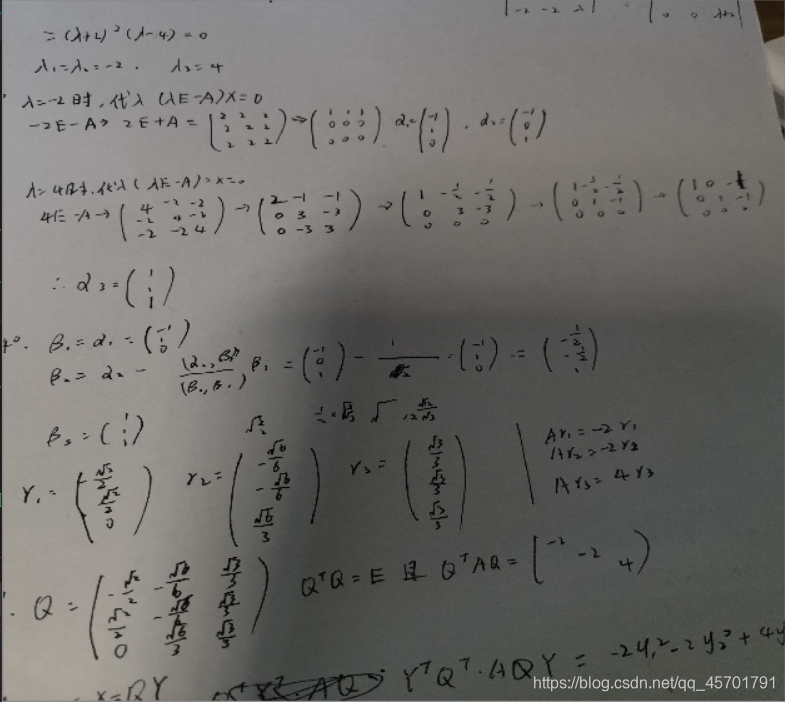 |-2 -2 λ| |0 0 λ+2|
= (λ+2)²(λ-4) = 0
λ₁=λ₂=-2. λ₃=4
λ=-2时,代入(λE-A)X=0
-2E-A→2E+A = (2 2 2; 2 2 2; 2 2 2) → (1 1 1; 0 0 0; 0 0 0) α₁=(-1; 1; 0), α₂=(-1; 0; 1)
λ=4时,代入(λE-A)=x=0
4E-A→(4 -2 -2; -2 4 -2; -2 -2 4) → (2 -1 -1; 0 3 -3; 0 -3 3) → (1 -1/2 -1/2; 0 3 -3; 0 0 0) → (1 -1/2 -1/2; 0 1 -1; 0 0 0) → (1 0 -1; 0 1 -1; 0 0 0)
∴ α₃ = (1; 1; 1)
β₁=α₁=(-1; 1; 0)
β₂=α₂-(α₂,β₁)/(β₁,β₁) β₁ = (-1; 0; 1) - 1/2 · (-1; 1; 0) = (-1/2; -1/2; 1)
β₃=(1; 1; 1)
γ₁=(-√2/2; √2/2; 0) γ₂=(-√6/6; -√6/6; √6/3) γ₃=(√3/3; √3/3; √3/3)
Aγ₁=-2γ₁
Aγ₂=-2γ₂
Aγ₃=4γ₃
Q = (-√2/2 -√6/6 √3/3; √2/2 -√6/6 √3/3; 0 √6/3 √3/3) QᵀQ=E 且 QᵀAQ=[-2 -2 4)
X=QY YᵀQᵀ·AQY = -2y₁²-2y₂²+4y
https://blog.csdn.net/qq_45701791